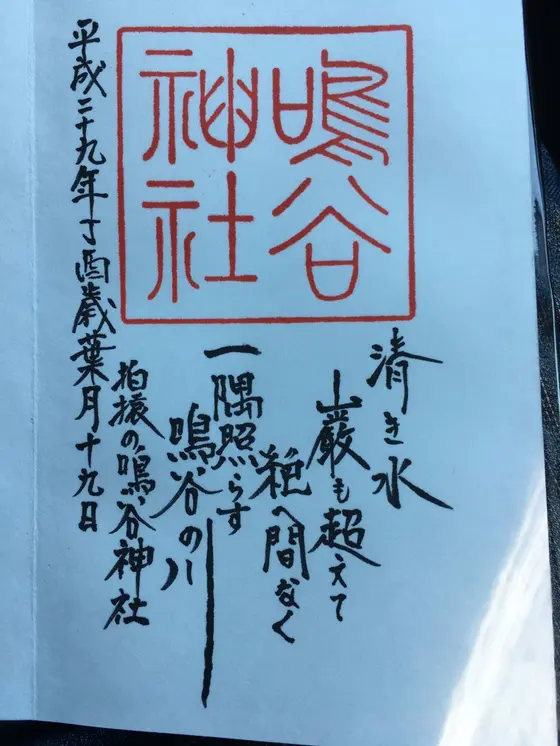 鳴谷
神社
清き水
山巌も超えて
絶へ間なく
一隅照らす
鳴谷の川
拍猿の鳴谷神社
平成二十九年丁酉歳葉月十九日